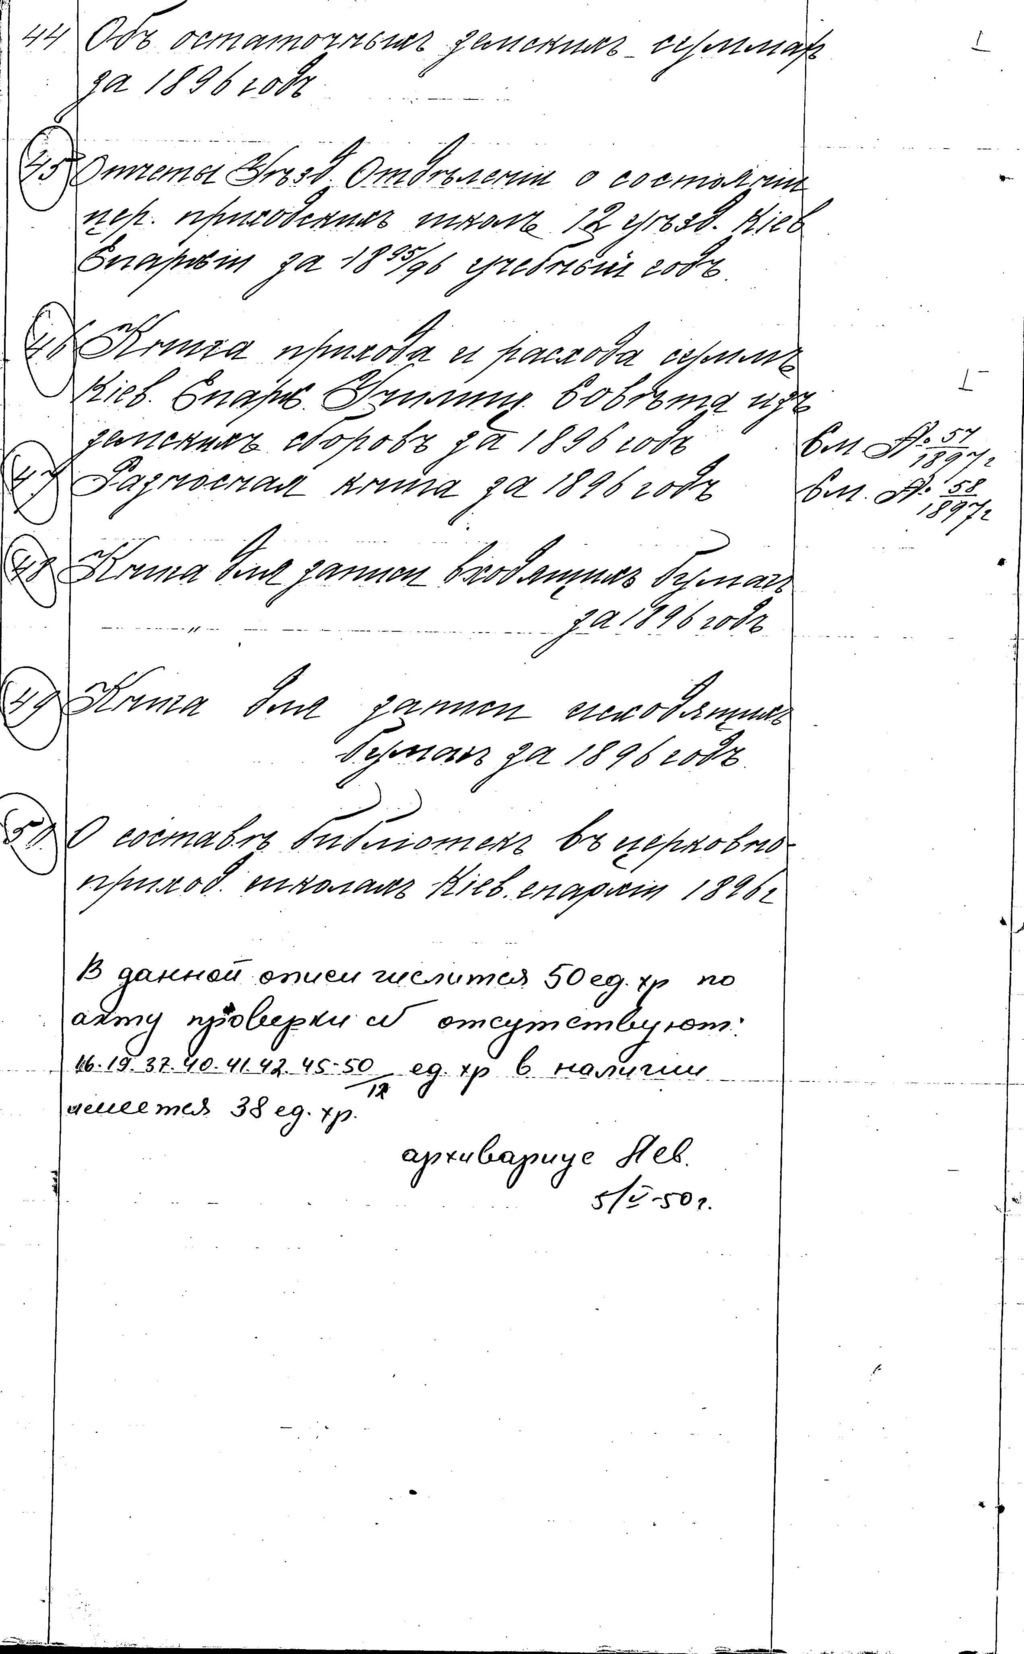 44 Объ остаточныхъ земскихъ суммахъ
за 1896 годъ
45 Отчеты Уѣзд. Отдѣленій о состояніи
цер. приходскихъ школъ 12 уѣзд. Кіев
Епархіи за 1895/96 учебный годъ.
46 Книга прихода и расхода суммъ
Кіев. Епарх. Училищ. Совѣта изъ
земскихъ сборовъ за 1896 годъ см № 57/1897г
47 Разносная книга за 1896 годъ см. № 58/1897г
48 Книга для записи входящихъ бумагъ
за 1896 годъ
49 Книга для записи исходящихъ
бумагъ за 1896 годъ.
50 О составѣ библіотекъ въ церковно-
приход. школахъ Кіев. епархіи 1896г
В данной описи числится 50 ед. хр по
акту проверки отсутствуют:
16. 19. 37. 40. 41. 42. 45-50/12 ед. хр в наличии
имеется 38 ед. хр.
архивариус
5/V-50г.